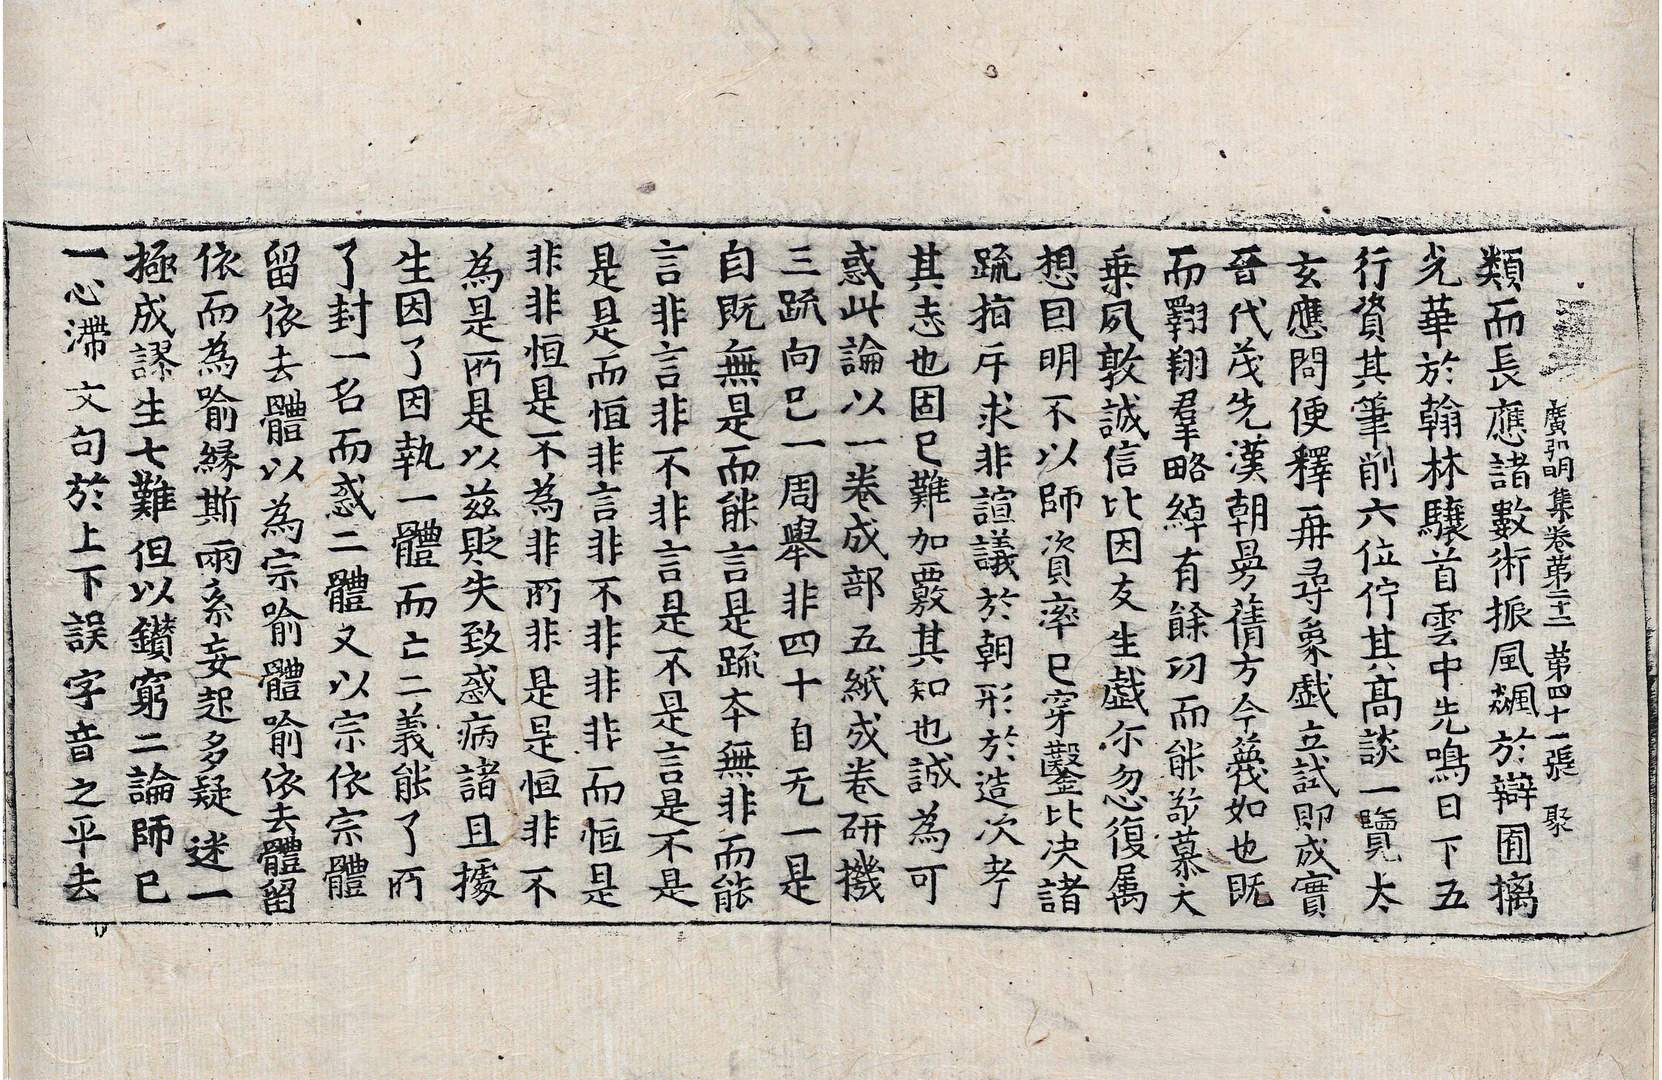 廣弘明集卷第二十二　第四十一張　聚
類而長應諸數術振風飈於辯囿摛
光華於翰林驤首雲中先鳴日下五
行資其筆削六位佇其高談一覽太
玄應問便釋再尋象戲立試即成實
晉代茂先漢朝曼蒨方今蔑如也既
而翱翔羣略綽有餘功而能敬慕大
乗夙敦誠信比因友生戲尓忽復属
想囙明不以師資率已穿鑿比決諸
䟽指斥求非諠議於朝形於造次考
其志也固已難加覈其知也誠為可
惑此論以一卷成部五紙成卷研機
三䟽向已一周舉非四十自无一是
自既無是而能言是䟽夲無非而能
言非言非不非言是不是言是不是
是是而恒非言非不非非非而恒是
非非恒是不為非所非是是恒非不
為是所是以兹貶失致惑病諸且據
生因了因執一體而亡二義能了所
了封一名而惑二體又以宗依宗體
留依去體以為宗喻體喻依去體留
依而為喻緣斯兩系妄起多疑迷一
極成謬生七難但以鑚窮二論師已
一心滯文句於上下誤字音之平去